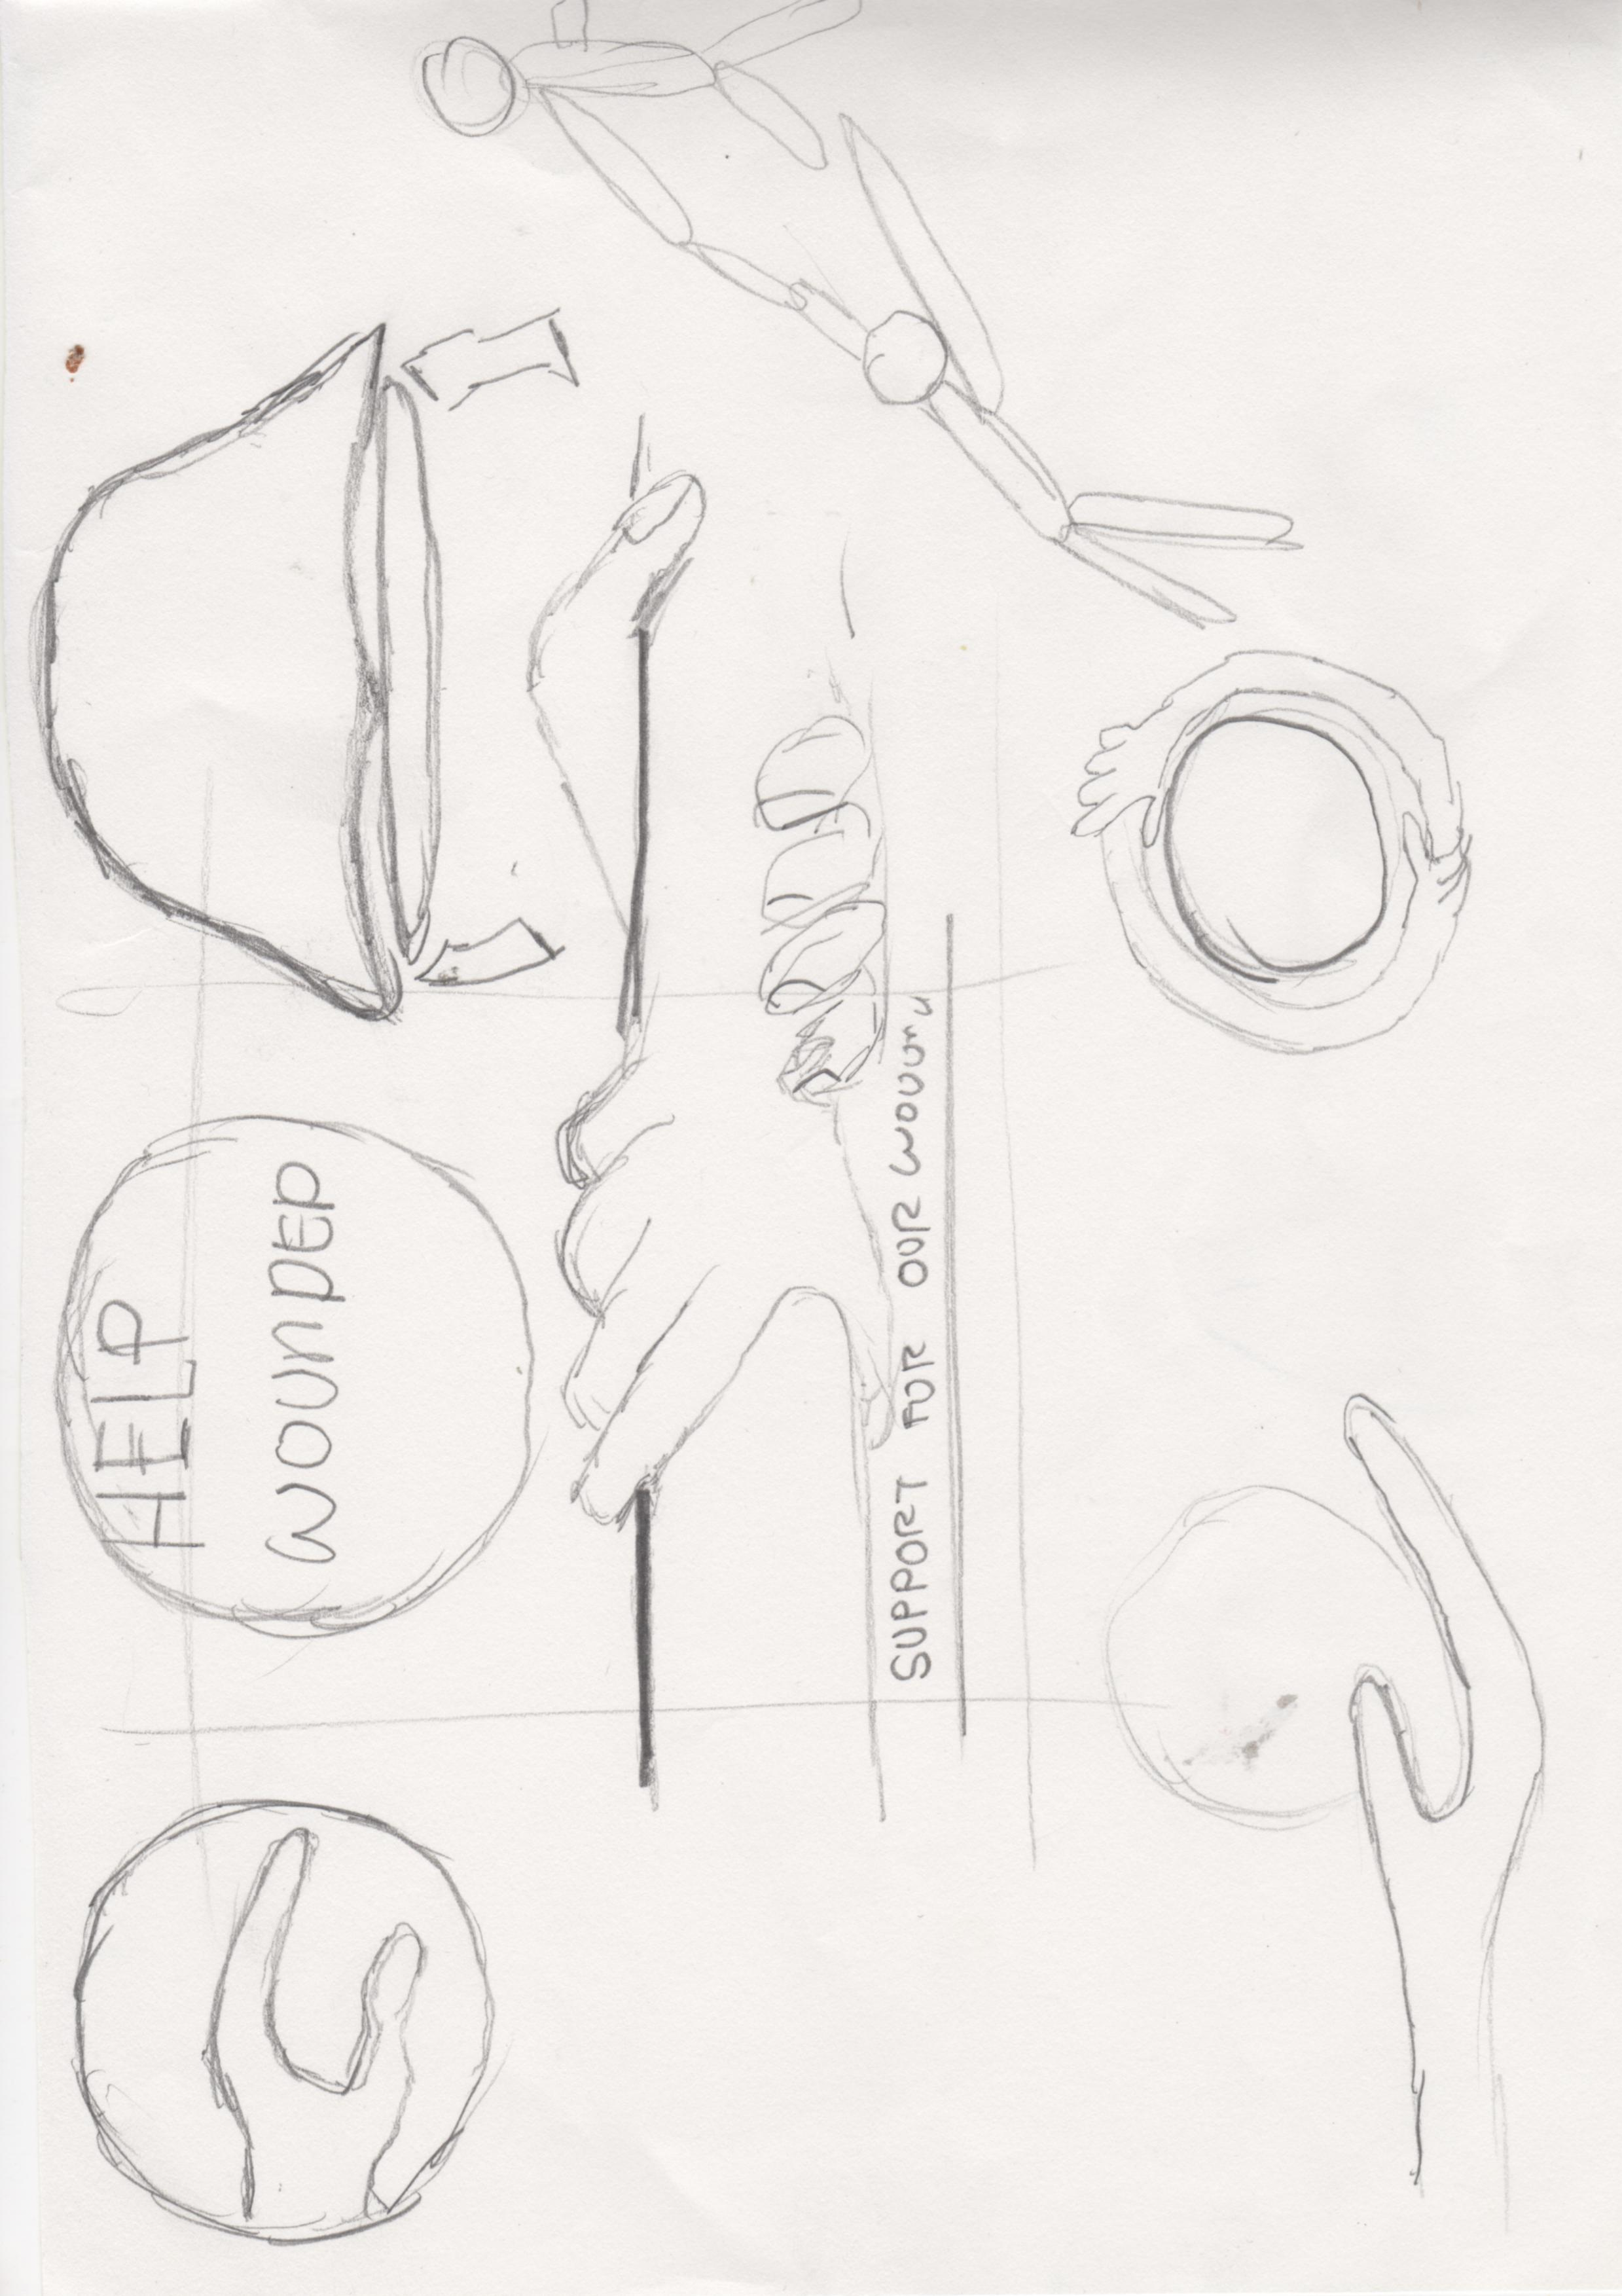 HELP
WOUNDED
SUPPORT FOR OUR